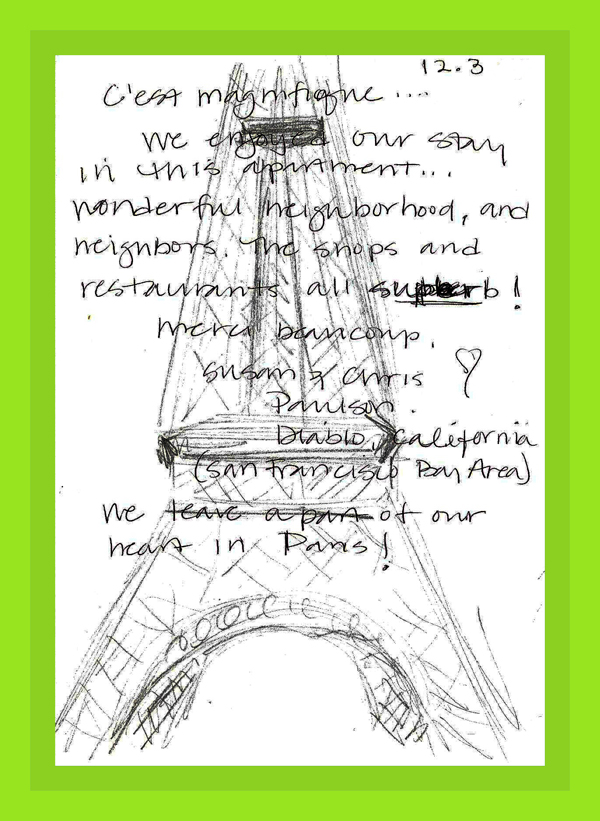 12.3
C'est magnifique ....
We enjoyed our stay
in this apartment...
wonderful neighborhood, and
neighbors. The shops and
restaurants all superb!
Merci beaucoup.
Susan & Chris
Paulson.
Diablo, California
(San Francisco Bay Area)
We leave a part of our
heart in Paris!